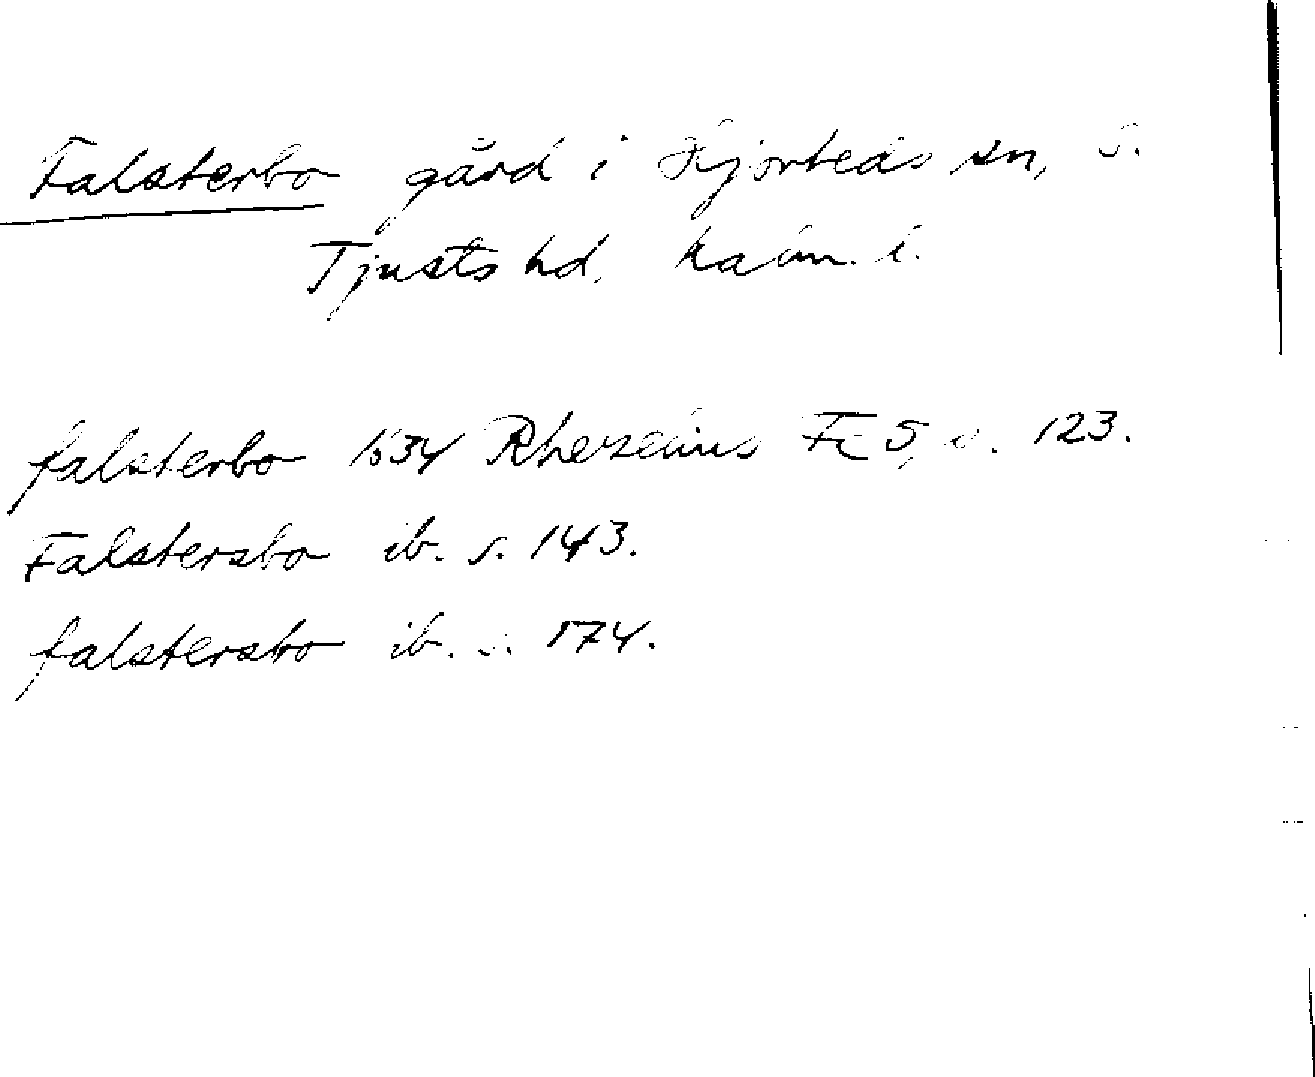 Falsterbo gård i Hjorteds sn, S.
Tjusts hd. Kalm. l.
falsterbo 1634 Rhezelius Fc 5, s. 123.
Falstersbo ib. s. 143.
falstersbo ib. s. 174.